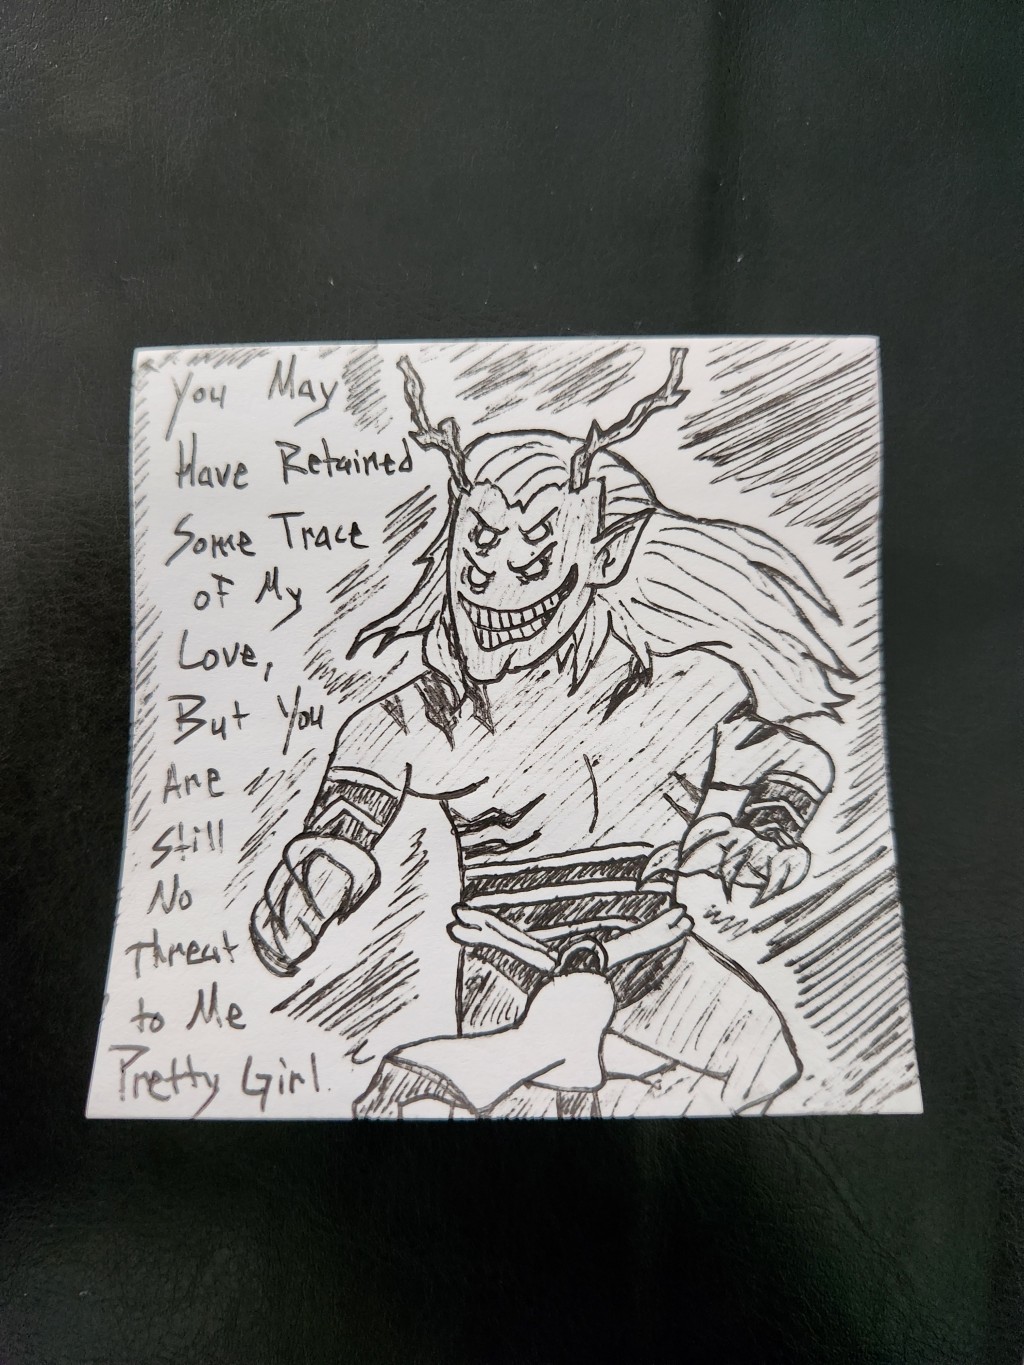 You May
Have Retained
Some Trace
of My
Love,
But You
Are
Still
No
Threat
to Me
Pretty Girl.